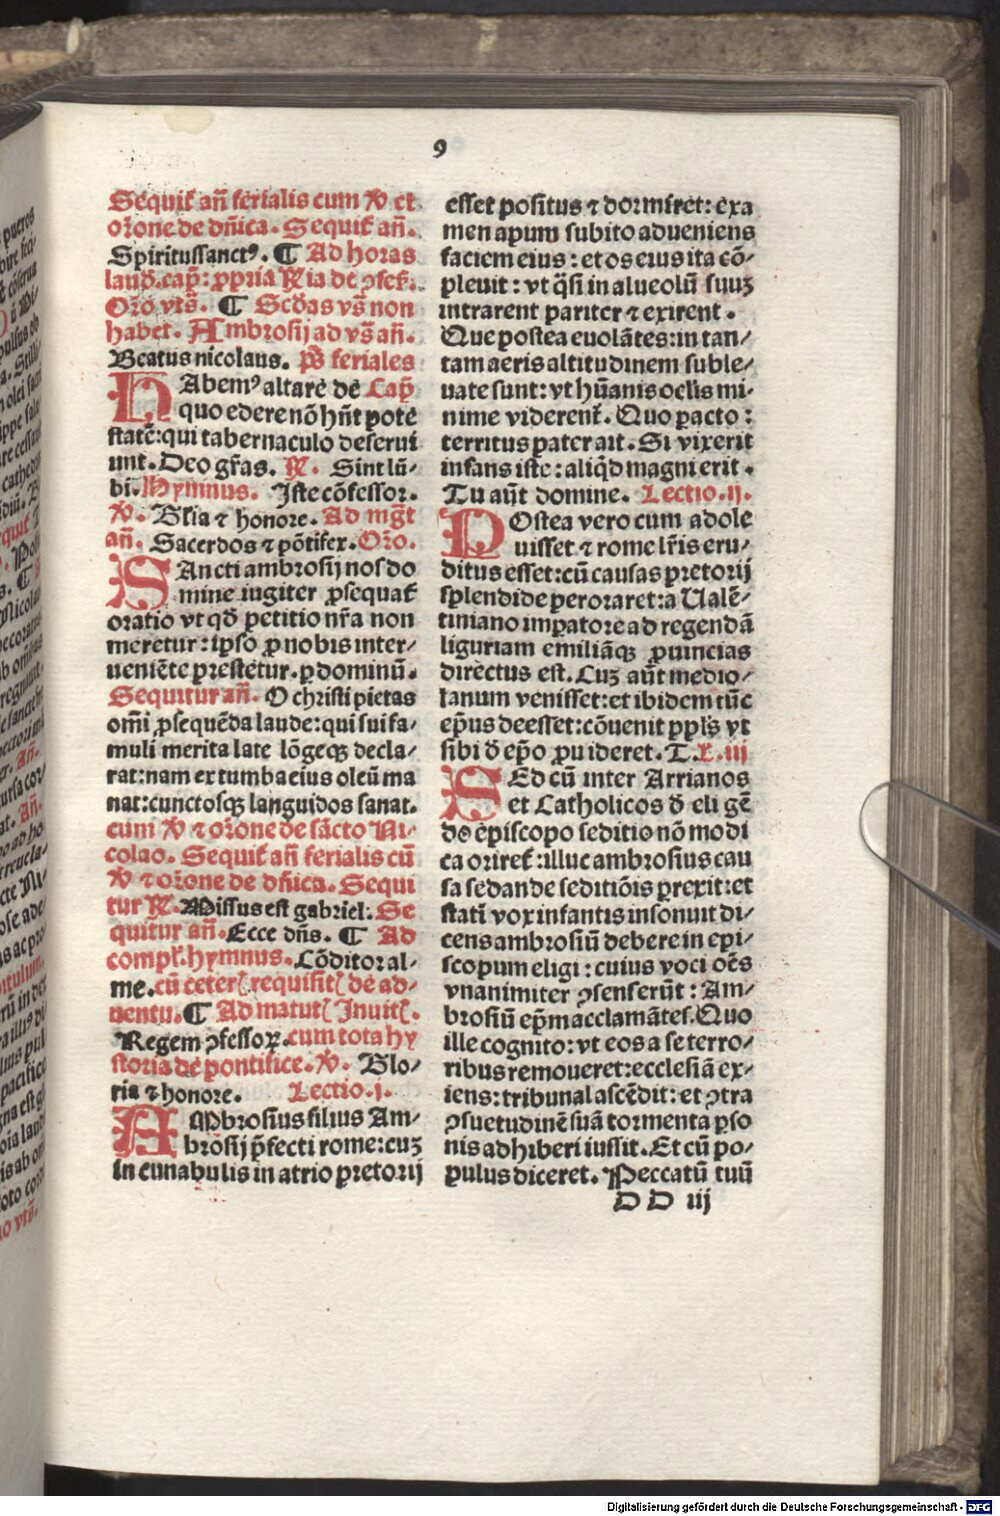 9
Sequit̃ añ ferialis cum ℣ et
oŕone de dñica. Sequit̃ añ.
Spiritussanctꝰ. ¶ Ad horas
laud̃. cap̃: ꝓpria ℟ia de ↄfeſ̃.
Oŕo vts̃. ¶ Scd̃as vs̃ non
habet. Ambrosij ad vs̃ añ.
Beatus nicolaus. ps̃ feriales
HAbemꝰ altare de Cap̃
quo edere nõ hñt pote
statẽ: qui tabernaculo deserui
unt. Deo gr̃as. ℟. Sint lũ-
bi. Hymnus. Iste cõfessor.
℣. Gl̃ia ⁊ honore. Ad mg̃t
añ. Sacerdos ⁊ põtifex. Oŕo.
SAncti ambrosij nos do
mine iugiter ꝓsequat̃
oratio vt qd̃ petitio nr̃a non
meretur: ipso ꝓ nobis inter-
ueniẽte prestetur. ꝑ dominũ.
Sequitur añ. O christi pietas
om̃i ꝓsequẽda laude: qui sui fa-
muli merita late lõgeqꝫ decla-
rat: nam ex tumba eius oleũ ma
nat: cunctosqꝫ languidos sanat.
cum ℣ ⁊ oŕone de sãcto Ni-
colao. Sequit̃ añ ferialis cũ
℣ ⁊ oŕone de dñica. Sequi
tur ℟. Missus est gabriel. Se
quitur añ. Ecce dñs. ¶ Ad
compl̃. hymnus. Cõditor al-
me. cũ ceteris requisitis de ad-
uentu. ¶ Ad matut̃ Inuit̃.
Regem ↄfessoꝝ. cum tota hy
storia de pontifice. ℣. Glo-
ria ⁊ honore. Lectio. j.
AMbrosius filius Am-
brosij p̃fecti rome: cuꝫ
in cunabulis in atrio pretorij
esset positus ⁊ dormiret: exa
men apum subito adueniens
faciem eius: et os eius ita cõ-
pleuit: vt q̃si in alueolũ suuꝫ
intrarent pariter ⁊ exirent.
Que postea euolãtes: in tan-
tam aeris altitudinem suble-
uate sunt: vt hũanis oclis mi-
nime viderent̃. Quo pacto:
territus pater ait. Si vixerit
infans iste: aliq̃d magni erit.
Tu aũt domine. Lectio. ij.
POstea vero cum adole
uisset ⁊ rome lr̃is eru-
ditus esset: cũ causas pretorij
splendide peroraret: a Ualẽ-
tiniano imꝑatore ad regendã
liguriam emiliãqꝫ ꝓuincias
directus est. Cuꝫ aũt medio-
lanum venisset: et ibidem tũc
ep̃us deesset: cõuenit ppl̃s vt
sibi d̃ ep̃o ꝓuideret. T. L. iij
SEd cũ inter Arrianos
et Catholicos d̃ eligẽ
do episcopo seditio nõ modi
ca oriret̃: illuc ambrosius cau
sa sedande seditiõis ꝑrexit: et
statĩ vox infantis insonuit di-
cens ambrosiũ debere in epi-
scopum eligi: cuius voci oẽs
vnanimiter ↄsenserũt: Am-
brosiũ ep̃m acclamãtes. Quo
ille cognito: vt eos a se terro-
ribus remoueret: ecclesiã ex-
iens: tribunal ascẽdit: et ↄtra
ↄsuetudinẽ suã tormenta ꝑso
nis adhiberi iussit. Et cũ po-
pulus diceret. Peccatũ tuũ
D D iij
Digitalisierung gefördert durch die Deutsche Forschungsgemeinschaft - DFG